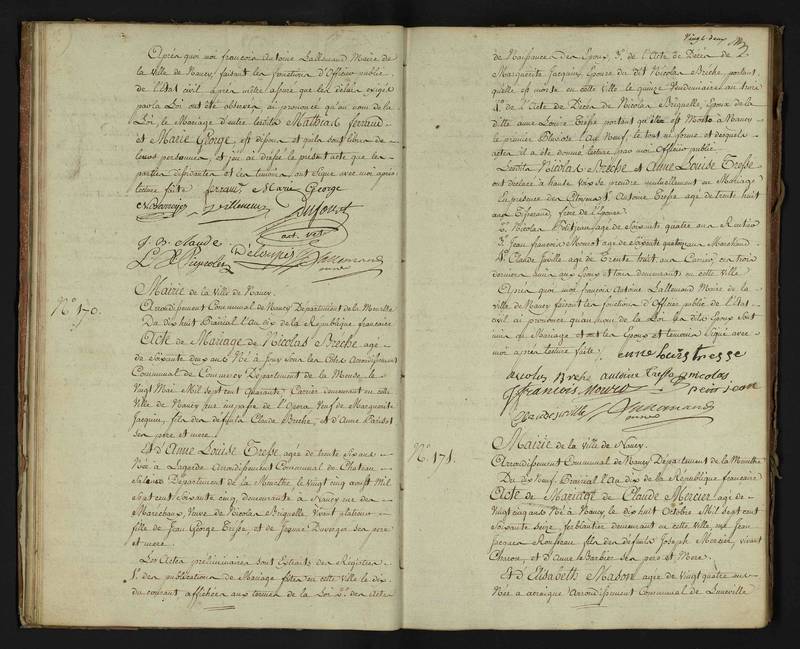 Après quoi moi francois Antoine Lallemand Maire de
la Ville de Nancy, faisant les fonctions d'Officier public
de l'Etat civil après m'être assuré que les délais exigés
par la Loi ont été observés, ai prononcé qu'au nom de la
Loi, le Mariage d'entre lesdits Mathias ferrand
et Marie George, est dissou et qu'ils sont libres de
leurs personnes, et j'ai dressé le présent acte que les
parties divorcantes et les temoins, ont signé avec moi après
lecture faite ferrand Marie George
Villemin Dufort
g. B. Claude
Lallemand
maire
N.° 170.
Mairie de la Ville de Nancy.
Arrondissement Communal de Nancy Département de la Meurthe
Du dix huit Prairial l'An dix de la République francaise
Acte de Mariage de Nicolas Breche agé
de soixante deux ans Né à Jouy sous les Côtes Arrondissement
Communal de Commercy Département de la Meuse, le
Vingt Mai Mil sept cent quarante, Carrier demeurant en cette
Ville de Nancy rue de l'Opera Veuf de Marguerite
Jacquin, fils des defunts Claude Breche, et d'Anne Parisot
ses pere et mere
Et d'Anne Louise Tresse agée de trente six ans
Née à Lagarde Arrondissement Communal de Chateau
Salins Département de la Meurthe le vingt cinq aoust Mil
sept cent soixante cinq, demeurante à Nancy rue des
Maréchaux, Veuve de Nicolas Briquelle Vivant
fille de Jean George Tresse, et de Jeanne Duverger ses pere
et mere
Les Actes preliminaires sont Extraits des Registres
1.° des publications de Mariage faites en cette Ville le dix
du courant affichées aux termes de la Loi 2.° des Actes
Vingt-deux
de Naissances des Epoux 3.° de l'Acte de Décès de
Marguerite Jacquin, Epouse du dit Nicolas Breche, portant
qu'elle est morte en cette Ville le quinze Vendemiaire an
4.° de l'Acte de Décès de Nicolas Briquelle, Epoux de la
ditte anne Louise Tresse portant qu'il est Mort à Nancy
le premier Pluviose An neuf, le tout en forme et desquels
actes il a été donné lecture par moi Officier public
Lesdits Nicolas Breche et Anne Louise Tresse
ont declaré à haute voix se prendre mutuellement en Mariage
En présence des Citoyens 1.° Antoine Tresse agé de trente huit
ans Tisserand, frere de l'Epouse
2.° Nicolas Petitjean agé de soixante quatre ans Rentier
3.° Jean francois Mourot agé de soixante quatorze ans Marechand
4.° Claude Juville agé de Trente huit ans Carrier, ces trois
derniers amis aux Epoux et tous demeurans en cette Ville
Après quoi moi francois Antoine Lallemand Maire de la
ville de Nancy faisant les fonctions d'Officier public de l'Etat
civil ai prononcé qu'au nom de la Loi les dits Epoux sont
unis en Mariage et les Epoux et temoins signé avec
moi après lecture faite, enne louis tresse
nicolas Breche antoine Tresse nicolas
J francois Mouro petit jean
Claude juville Lallemand
maire
N.° 171.
Mairie de la Ville de Nancy.
Arrondissement Communal de Nancy Département de la Meurthe
Du dix Neuf Prairial l'An dix de la République francaise
Acte de Mariage de Claude Mercier agé de
Vingt cinq ans Né à Nancy, le dix huit Octobre Mil sept cent
soixante seize, ferblantier demeurant en cette ville, rue Jean
Jacques Rousseau fils des défunts Joseph Mercier, vivant
Charon, et d'Anne Barbier ses pere et Mere.
Et d'Elisabeth Mahon agée de Vingt quatre ans
Née à Arrondissement Communal de Luneville